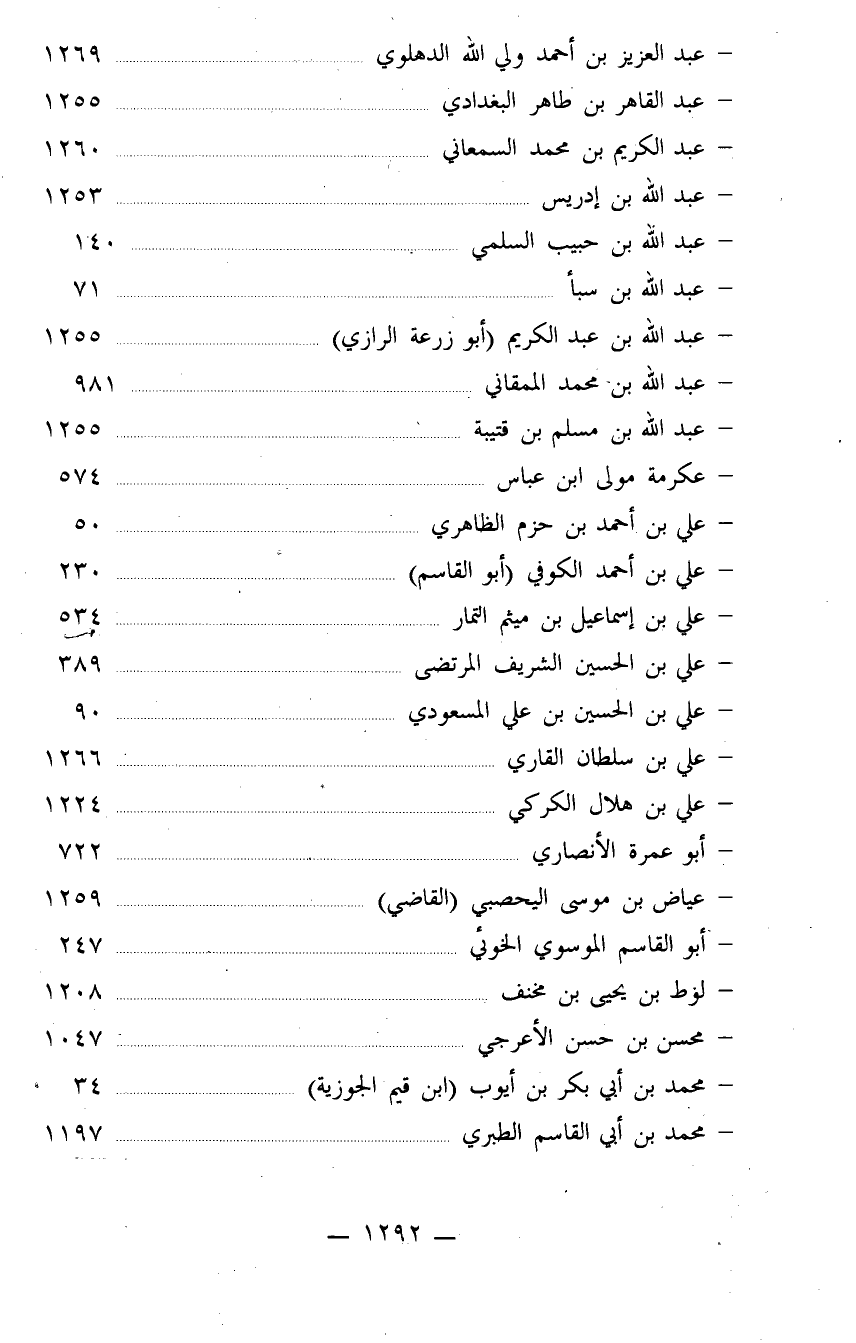 – عبد العزيز بن أحمد ولي الله الدهلوي ........ ١٢٦٩
– عبد القاهر بن طاهر البغدادي ........ ١٢٥٥
– عبد الكريم بن محمد السمعاني ........ ١٢٦٠
– عبد الله بن إدريس ........ ١٢٥٣
– عبد الله بن حبيب السلمي ........ ١٤٠
– عبد الله بن سبأ ........ ٧١
– عبد الله بن عبد الكريم (أبو زرعة الرازي) ........ ١٢٥٥
– عبد الله بن محمد الممقاني ........ ٩٨١
– عبد الله بن مسلم بن قتيبة ........ ١٢٥٥
– عكرمة مولى ابن عباس ........ ٥٧٤
– علي بن أحمد بن حزم الظاهري ........ ٥٠
– علي بن أحمد الكوفي (أبو القاسم) ........ ٢٣٠
– علي بن إسماعيل بن ميثم التمار ........ ٥٣٤
– علي بن الحسين الشريف المرتضى ........ ٣٨٩
– علي بن الحسين بن علي المسعودي ........ ٩٠
– علي بن سلطان القاري ........ ١٢٦٦
– علي بن هلال الكركي ........ ١٢٢٤
– أبو عمرة الأنصاري ........ ٧٢٢
– عياض بن موسى اليحصبي (القاضي) ........ ١٢٥٩
– أبو القاسم الموسوي الخوئي ........ ٢٤٧
– لوط بن يحيى بن مخنف ........ ١٢٠٨
– محسن بن حسن الأعرجي ........ ١٠٤٧
– محمد بن أبي بكر بن أيوب (ابن قيم الجوزية) ........ ٣٤
– محمد بن أبي القاسم الطبري ........ ١١٩٧
– ١٢٩٢ –